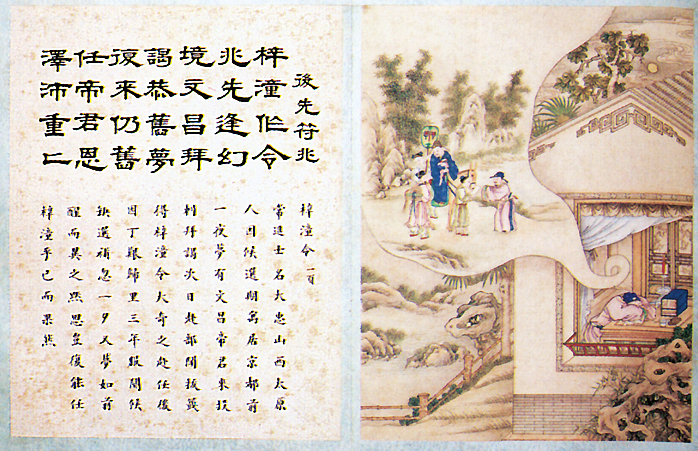 後先符兆
梓潼作令
兆先逢幻
境文昌拜
謁恭舊夢
復來仍舊
任帝君恩
澤沛重〻
梓潼令一頁
常進士名大忠山西太原
人因候選期寓居京都前
一夜夢有文昌帝君來投
刺拜謁次日赴部開拔籤
得梓潼令大奇之赴任後
因丁艱歸里三年服闋候
缺選補忽一夕又夢如前
醒而異之然思豈復能任
梓潼乎已而果然